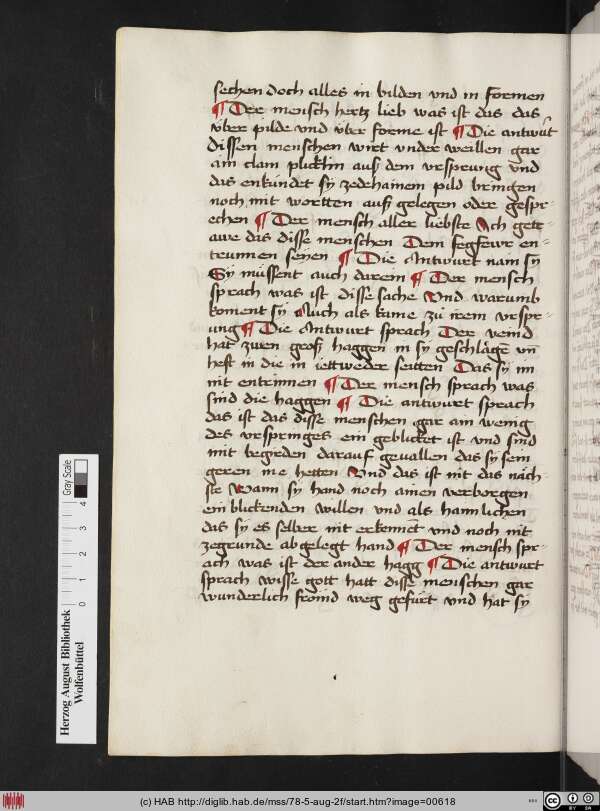 sechen doch alles in bilden vnd in formen
¶ Der mensch hertz lieb was ist das das
vber pilde vnd vber forme ist ¶ Die antwurt
dissen menschen wirt vnder weillen gar
ain clain plicklin auß dem vrsprung vnd
das enkundet sy zedehainem pild bringen
noch mit wortten auß gelegen oder gespr-
echen ¶ Der mensch aller liebste Ach getr-
awe das disse menschen Dem fegfewr en-
trunnen seyen ¶ Die Antwurt nain sy
Sy müssent auch darein ¶ Der mensch
sprach was ist disse sache Vnd warumb
koment sy Auch als kume zü irem vrspr-
ung ¶ Die Antwurt sprach Der veind
hat zwen groß haggen in sy geschlagē vn̄
heft in die in iettweder seitten Das sy im
nit entrinnen ¶ Der mensch sprach was
sind die haggen ¶ Die antwurt sprach
das ist das disse menschen gar ain wenig
des vrspringes ein geblicket ist vnd sind
mit begirden darauf gevallen das sy sein
geren me hetten Vnd das ist nit das näch-
ste Wann sy hand noch ainen verborgen
ein blickenden willen vnd als hannlichen
das sy es selber nit erkennēt vnd noch nit
zegrunde abgelegt hand ¶ Der mensch spr-
ach was ist der ander hagg ¶ Die antwurt
sprach wisse gott hatt disse menschen gar
wunderlich froind weg gefürt vnd hat sy
Herzog August Bibliothek
Wolfenbüttel
Gray Scale
0 1 2 3 4
(c) HAB http://diglib.hab.de/mss/78-5-aug-2f/start.htm?image=00618
cc BY SA